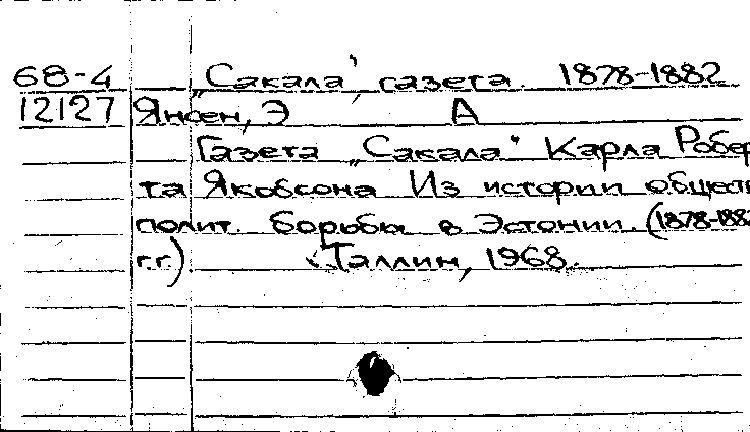 68-4 „Сакала", газета. 1878-1882
12127 Янсен, Э А
Газета „Сакала" Карла Робер
та Якобсона Из истории обществ
полит. борьбы в Эстонии. (1878-1882
г.г.) Таллин, 1968.